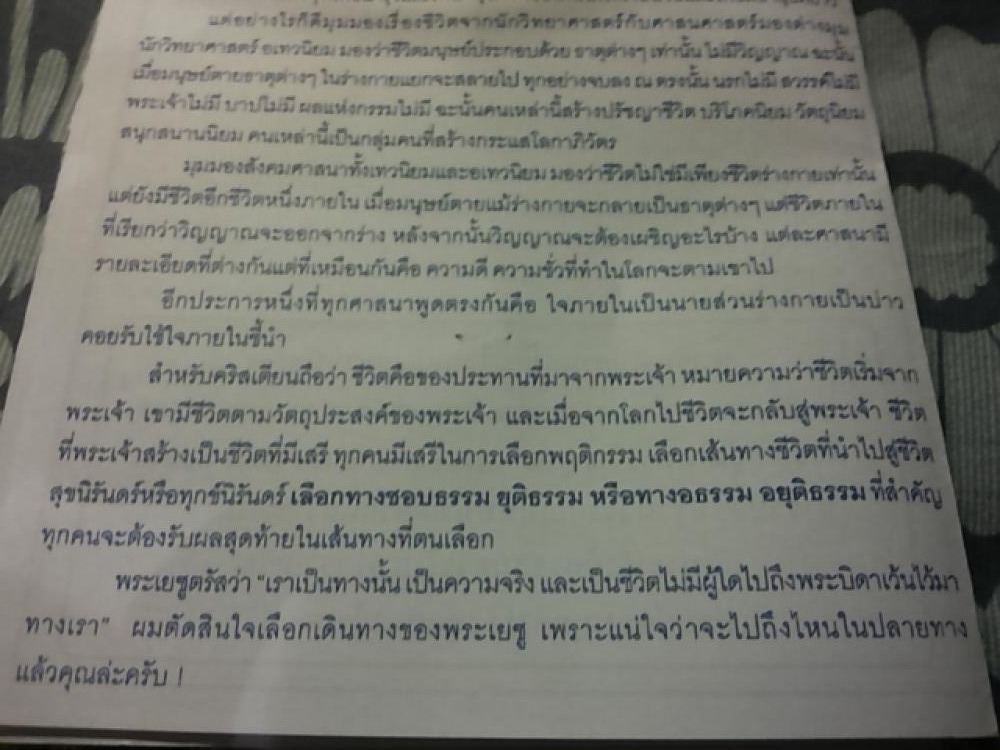 แต่อย่างไรก็ดีมุมมองเรื่องชีวิตจากนักวิทยาศาสตร์กับศาสนศาสตร์มองต่างมุม
นักวิทยาศาสตร์ อเทวนิยม มองว่าชีวิตมนุษย์ประกอบด้วย ธาตุต่างๆ เท่านั้น ไม่มีวิญญาณ ฉะนั้น
เมื่อมนุษย์ตายธาตุต่างๆ ในร่างกายแยกจะสลายไป ทุกอย่างจบลง ณ ตรงนั้น นรกไม่มี สวรรค์ไม่มี
พระเจ้าไม่มี บาปไม่มี ผลแห่งกรรมไม่มี ฉะนั้นคนเหล่านี้สร้างปรัชญาชีวิต บริโภคนิยม วัตถุนิยม
สนุกสนานนิยม คนเหล่านี้เป็นกลุ่มคนที่สร้างกระแสโลกาภิวัตร
มุมมองสังคมศาสนาทั้งเทวนิยมและอเทวนิยม มองว่าชีวิตไม่ใช่มีเพียงชีวิตร่างกายเท่านั้น
แต่ยังมีชีวิตอีกชีวิตหนึ่งภายใน เมื่อมนุษย์ตายแม้ร่างกายจะกลายเป็นธาตุต่างๆ แต่ชีวิตภายใน
ที่เรียกว่าวิญญาณจะออกจากร่าง หลังจากนั้นวิญญาณจะต้องเผชิญอะไรบ้าง แต่ละศาสนามี
รายละเอียดที่ต่างกันแต่ที่เหมือนกันคือ ความดี ความชั่วที่ทำในโลกจะตามเขาไป
อีกประการหนึ่งที่ทุกศาสนาพูดตรงกันคือ ใจภายในเป็นนายส่วนร่างกายเป็นบ่าว
คอยรับใช้ใจภายในชี้นำ
สำหรับคริสเตียนถือว่า ชีวิตคือของประทานที่มาจากพระเจ้า หมายความว่าชีวิตเริ่มจาก
พระเจ้า เขามีชีวิตตามวัตถุประสงค์ของพระเจ้า และเมื่อจากโลกไปชีวิตจะกลับสู่พระเจ้า ชีวิต
ที่พระเจ้าสร้างเป็นชีวิตที่มีเสรี ทุกคนมีเสรีในการเลือกพฤติกรรม เลือกเส้นทางชีวิตที่นำไปสู่ชีวิต
สุขนิรันดร์หรือทุกข์นิรันดร์ เลือกทางชอบธรรม ยุติธรรม หรือทางอธรรม อยุติธรรม ที่สำคัญ
ทุกคนจะต้องรับผลสุดท้ายในเส้นทางที่ตนเลือก
พระเยซูตรัสว่า "เราเป็นทางนั้น เป็นความจริง และเป็นชีวิตไม่มีผู้ใดไปถึงพระบิดาเว้นไว้มา
ทางเรา" ผมตัดสินใจเลือกเดินทางของพระเยซู เพราะแน่ใจว่าจะไปถึงไหนในปลายทาง
แล้วคุณล่ะครับ !